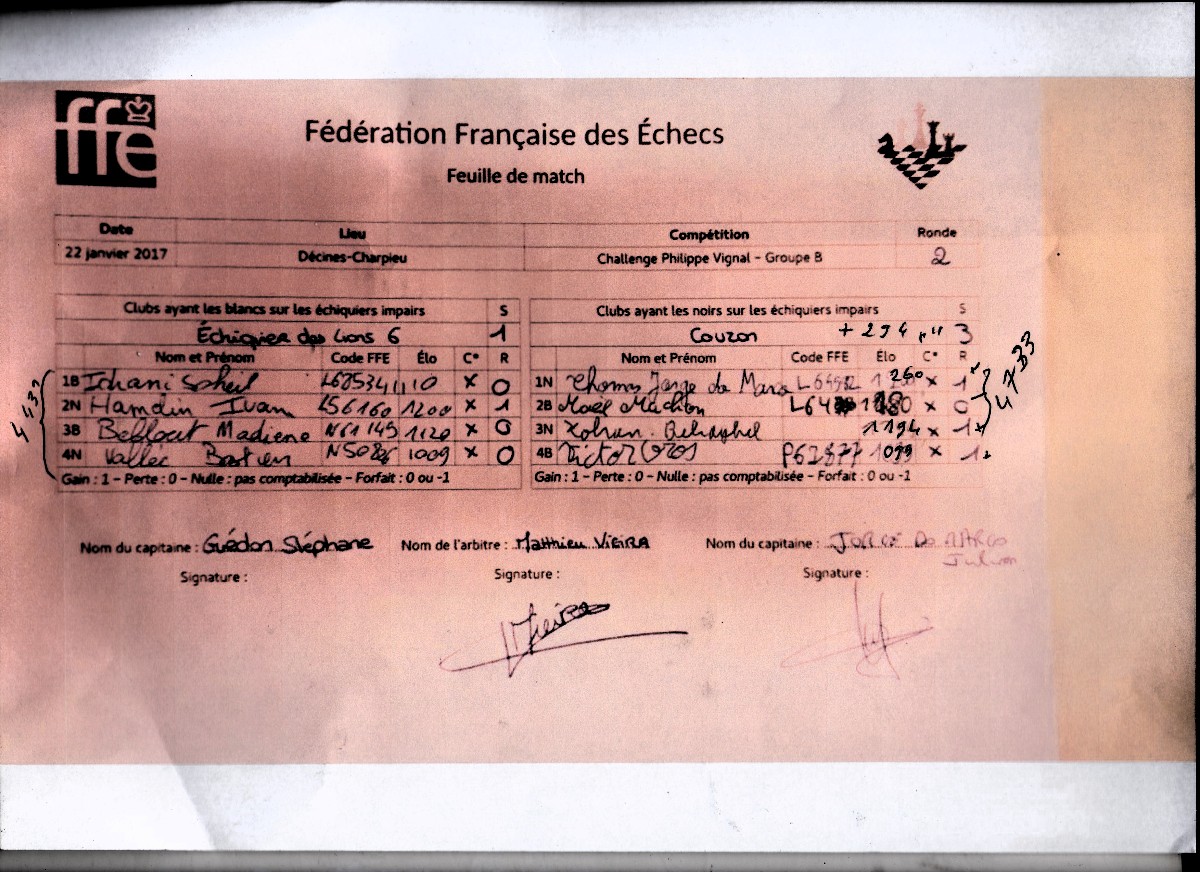 ffe
Fédération Française des Échecs
Feuille de match
Date Lieu Compétition Ronde
22 janvier 2017 Décines-Charpieu Challenge Philippe Vignal - Groupe B 2
Clubs ayant les blancs sur les échiquiers impairs S Clubs ayant les noirs sur les échiquiers impairs S
Échiquier des Lions 6 1 Couzon + 294 3
Nom et Prénom Code FFE Élo C° R Nom et Prénom Code FFE Élo C° R
1B x 0 1N Thomas Jorge do x 1
2N Hamdin Ivan L56160 1200 x 1 2B Maël x 0
3B Madiene N61149 1120 x 0 3N 1194 x 1
4N Vallec Bastien 1009 x 0 4B Victor Gros 1099 x 1
Gain : 1 – Perte : 0 – Nulle : pas comptabilisée – Forfait : 0 ou -1 Gain : 1 – Perte : 0 – Nulle : pas comptabilisée – Forfait : 0 ou -1
Nom du capitaine : Guédon Stéphane Nom de l'arbitre : Matthieu VIEIRA Nom du capitaine : JORGE DO
Signature : Signature : Signature :
Vieira